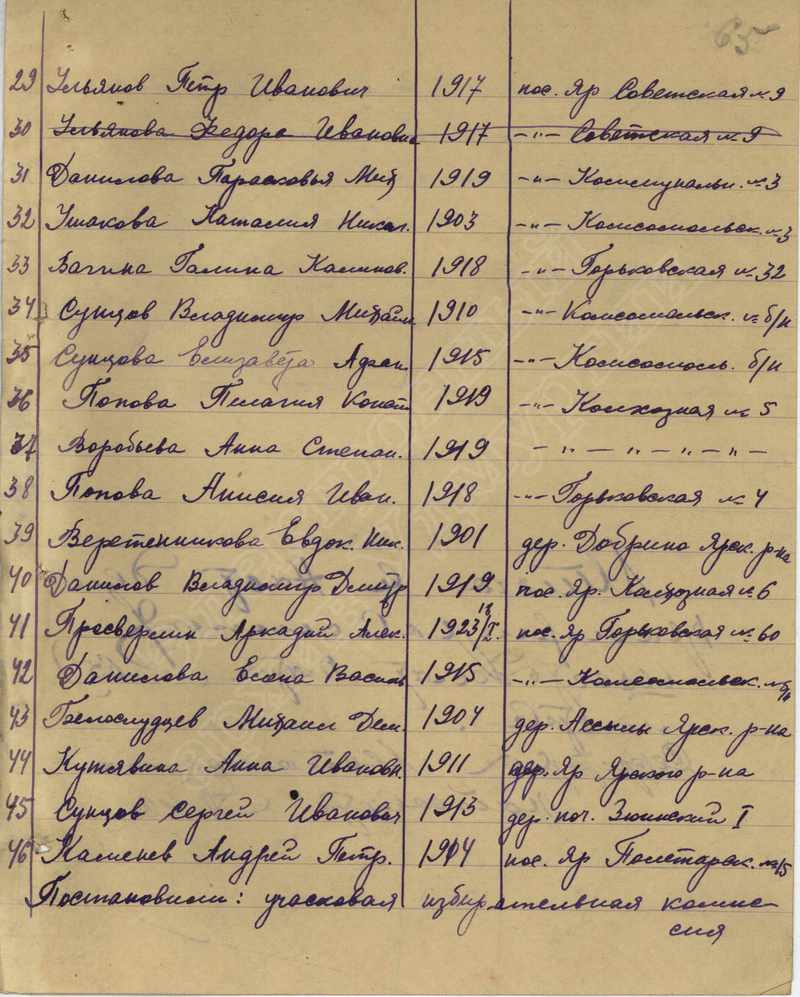 65
29 Ульянов Петр Иванович 1917 пос. Яр Советская № 9
30 Ульянова Федора Ивановна 1917 –"– Советская № 9
31 Данилова Парасковья Мих 1919 –"– Коммунальн. № 3
32 Ушакова Наталия Никол. 1903 –"– Комсомольск. № 3
33 Вагина Галина Калинов. 1918 –"– Горьковская № 32
34 Сунцов Владимир Михайл 1910 –"– Комсомольск. № б/н
35 Сунцова Елизавета Адган. 1915 –"– Комсомоль. б/н
36 Попова Пелагия Конст 1919 –"– Колхозная № 5
37 Воробьева Анна Степан. 1919 – " – " – " – " –
38 Попова Анисия Иван. 1918 –"– Горьковская № 4
39 Веретенникова Евдок. Ник. 1901 дер. Добрино Ярск. р-на
40 Данилов Владимир Дмитр 1919 пос. Яр. Колхозная № 6
41 Просверлин Аркадий Алек. 1923 13/I. пос. Яр Горьковская № 60
42 Данилова Елена Василь 1915 –"– Комсомольск. № б/н
43 Белослудцев Михаил Дем. 1904 дер. Ярск. р-на
44 Кутявина Анна Ивановн. 1911 дер. Яр Ярского р-на
45 Сунцов Сергей Иванович 1913 дер. поч. Зюинский I
46 Каменев Андрей Петр. 1904 пос. Яр Пролетарск. № 15
Постановили: участковая избирательная комис-
сия